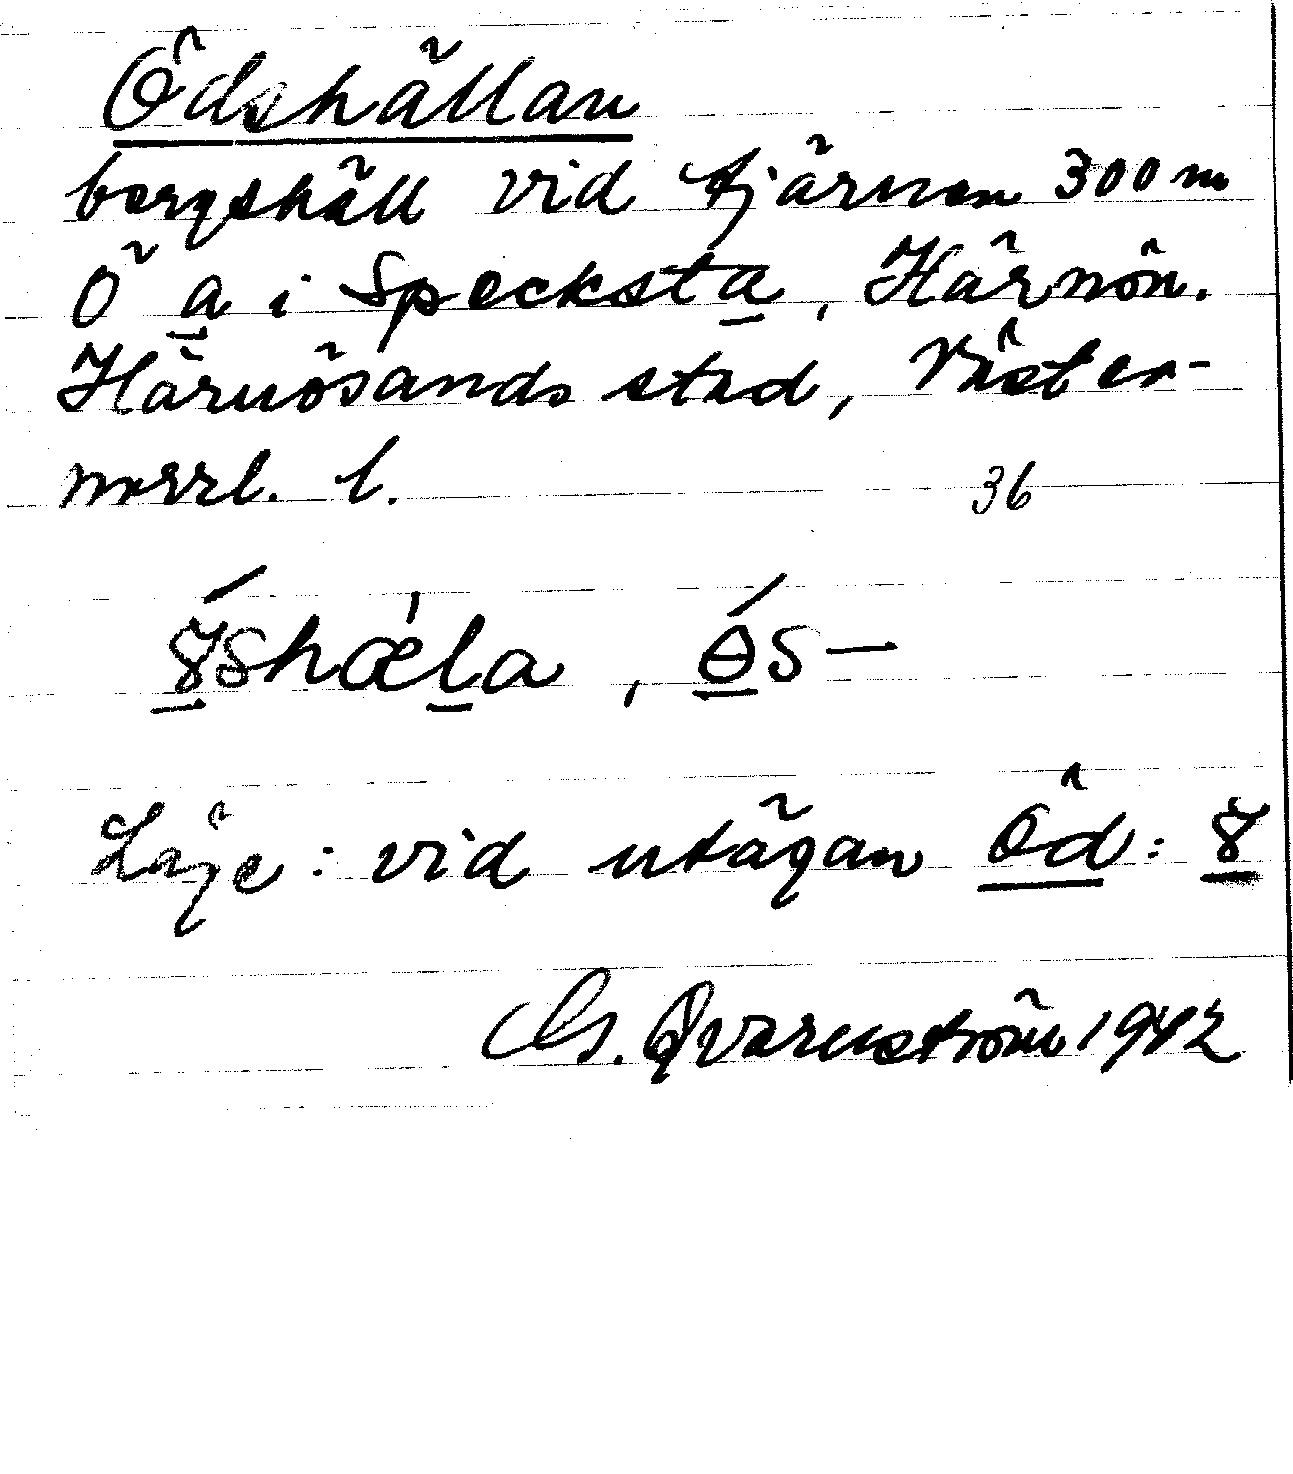 Ödshällan
bergshäll vid tjärnen 300 m
Ö a i Specksta, Härnön.
Härnösands stad, Väster-
norrl. l. 36
shæla, ɵs—
Läge: vid utägan Öd:
G. Qvarnström 1942